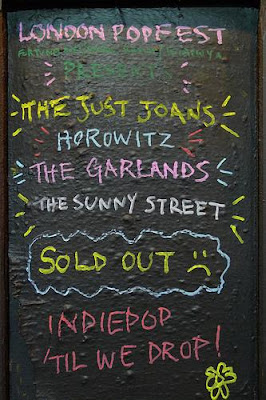 LONDON POPFEST
PRESENTS
THE JUST JOANS
HOROWITZ
THE GARLANDS
THE SUNNY STREET
SOLD OUT
INDIEPOP
'TIL WE DROP!